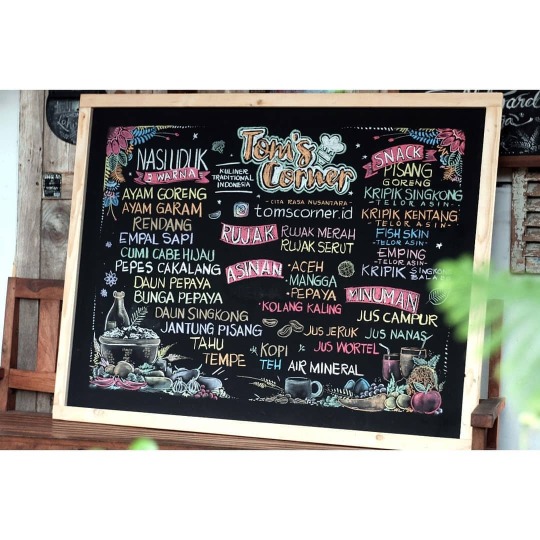 NASI UDUK
3 WARNA
AYAM GORENG
AYAM GARAM
RENDANG
EMPAL SAPI
CUMI CABE HIJAU
PEPES CAKALANG
DAUN PEPAYA
BUNGA PEPAYA
DAUN SINGKONG
JANTUNG PISANG
TAHU
TEMPE
Tom's
Corner
KULINER
TRADITIONAL
INDONESIA
- CITA RASA NUSANTARA -
tomscorner.id
RUJAK
RUJAK MERAH
RUJAK SERUT
ASINAN
• ACEH
• MANGGA
• PEPAYA
• KOLANG KALING
SNACK
PISANG
GORENG
KRIPIK SINGKONG
- TELOR ASIN -
KRIPIK KENTANG
- TELOR ASIN -
FISH SKIN
- TELOR ASIN -
EMPING
- TELOR ASIN -
KRIPIK SINGKONG
BALADO
MINUMAN
JUS CAMPUR
JUS JERUK
JUS NANAS
JUS WORTEL
KOPI
TEH
AIR MINERAL